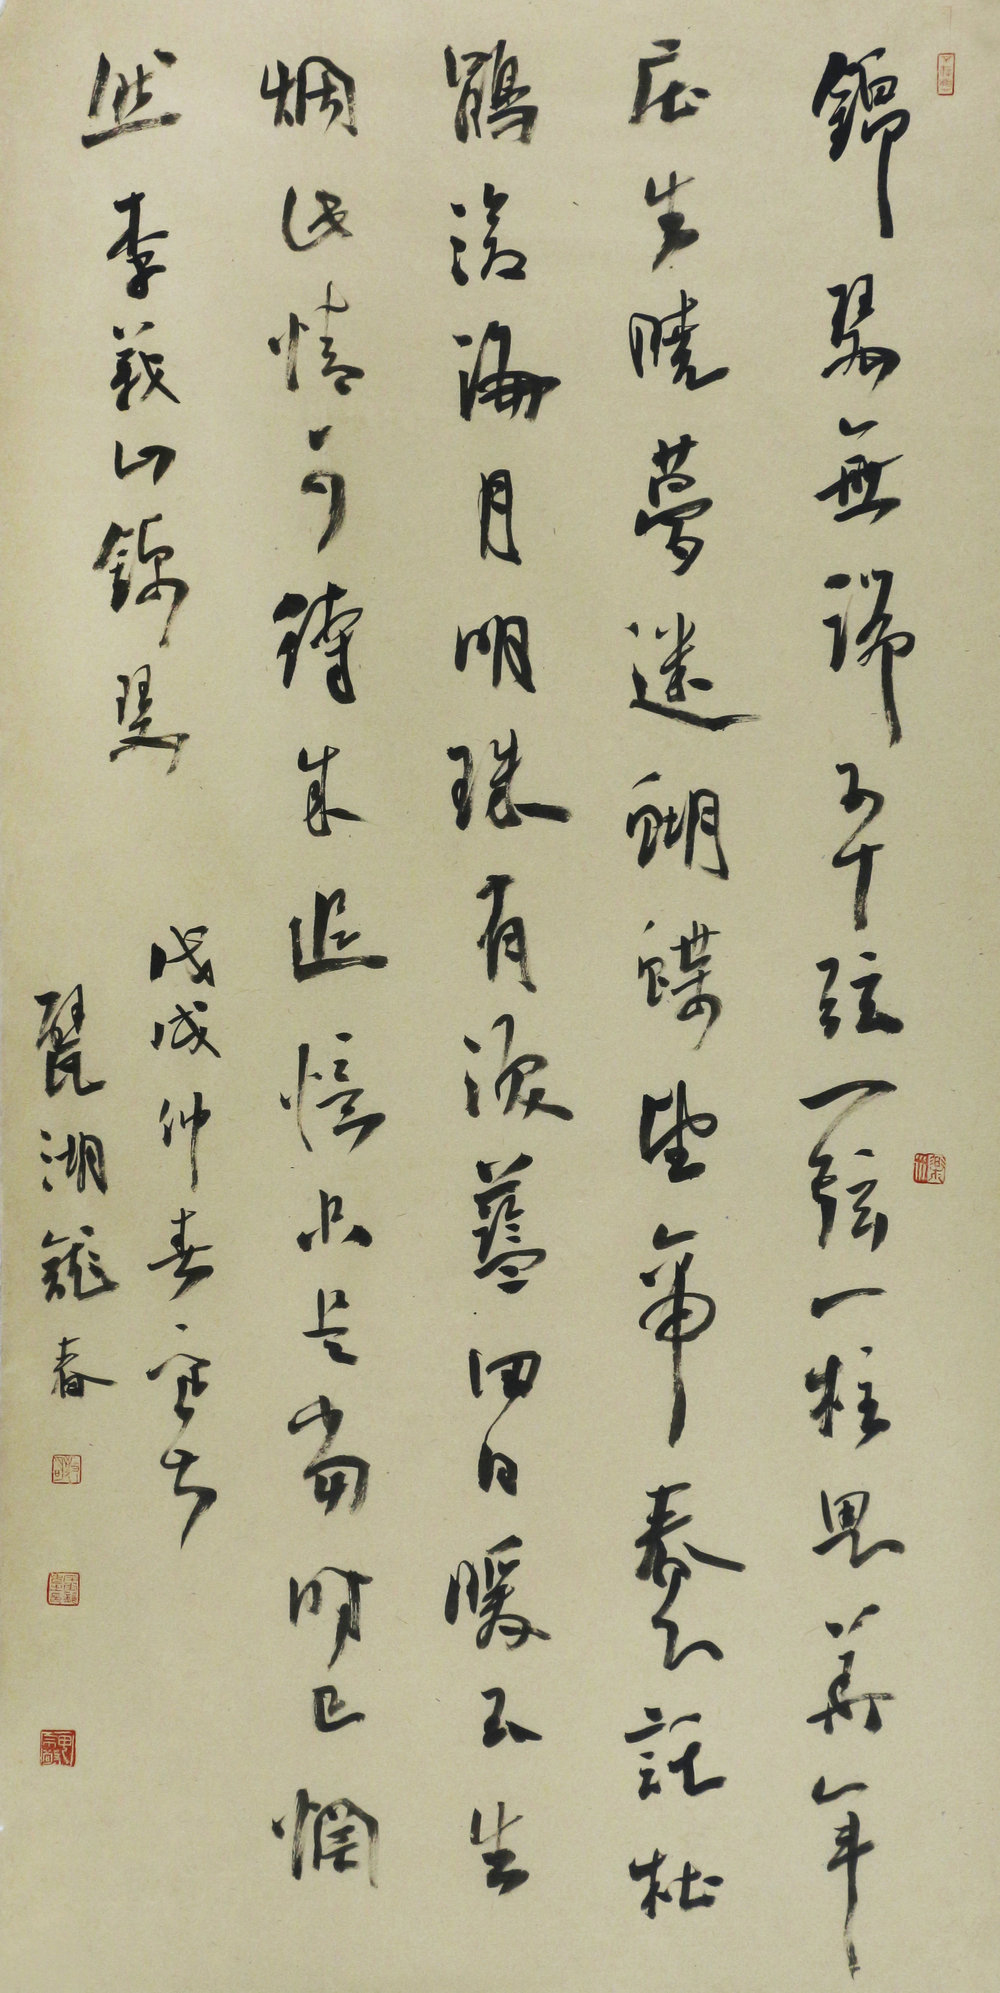 錦瑟無端五十弦一弦一柱思華年
庄生曉夢迷蝴蝶望帝春心託杜
鵑滄海月明珠有淚藍田日暖玉生
烟此情可待成追憶只是當時已惘
然李義山錦瑟
戊戌仲春
甓湖龍春